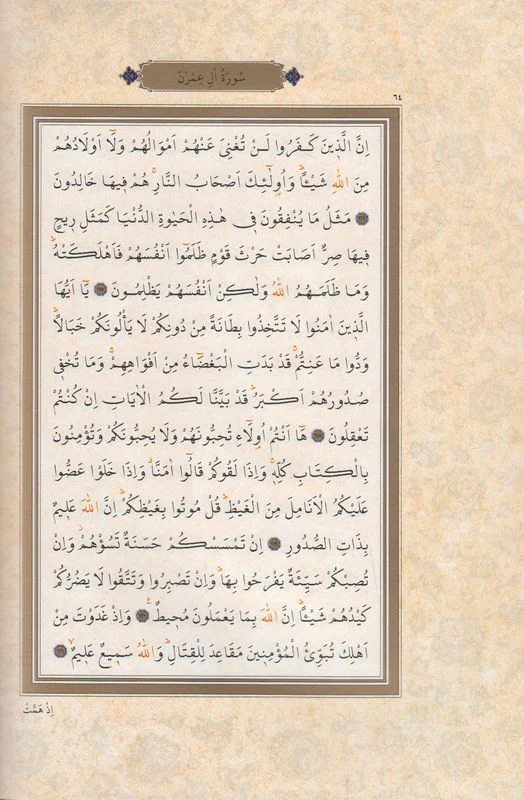 سُورَةُ اٰلِ عِمْرٰنَ
٦٤
اِنَّ الَّذ۪ينَ كَفَرُوا لَنْ تُغْنِيَ عَنْهُمْ اَمْوَالُهُمْ وَلَٓا اَوْلَادُهُمْ
مِنَ اللّٰهِ شَيْـًٔاۜ وَاُو۬لٰٓئِكَ اَصْحَابُ النَّارِۚ هُمْ ف۪يهَا خَالِدُونَ
﴿١١٦﴾ مَثَلُ مَا يُنْفِقُونَ ف۪ي هٰذِهِ الْحَيٰوةِ الدُّنْيَا كَمَثَلِ ر۪يحٍ
ف۪يهَا صِرٌّ اَصَابَتْ حَرْثَ قَوْمٍ ظَلَمُٓوا اَنْفُسَهُمْ فَاَهْلَكَتْهُۜ
وَمَا ظَلَمَهُمُ اللّٰهُ وَلٰكِنْ اَنْفُسَهُمْ يَظْلِمُونَ ﴿١١٧﴾ يَٓا اَيُّهَا
الَّذ۪ينَ اٰمَنُوا لَا تَتَّخِذُوا بِطَانَةً مِنْ دُونِكُمْ لَا يَأْلُونَكُمْ خَبَالًاۜ
وَدُّوا مَا عَنِتُّمْۚ قَدْ بَدَتِ الْبَغْضَٓاءُ مِنْ اَفْوَاهِهِمْۚ وَمَا تُخْف۪ي
صُدُورُهُمْ اَكْبَرُۜ قَدْ بَيَّنَّا لَكُمُ الْاٰيَاتِ اِنْ كُنْتُمْ
تَعْقِلُونَ ﴿١١٨﴾ هَٓا اَنْتُمْ اُو۬لَٓاءِ تُحِبُّونَهُمْ وَلَا يُحِبُّونَكُمْ وَتُؤْمِنُونَ
بِالْكِتَابِ كُلِّه۪ۚ وَاِذَا لَقُوكُمْ قَالُٓوا اٰمَنَّاۗ وَاِذَا خَلَوْا عَضُّوا
عَلَيْكُمُ الْاَنَامِلَ مِنَ الْغَيْظِۜ قُلْ مُوتُوا بِغَيْظِكُمْۜ اِنَّ اللّٰهَ عَل۪يمٌ
بِذَاتِ الصُّدُورِ ﴿١١٩﴾ اِنْ تَمْسَسْكُمْ حَسَنَةٌ تَسُؤْهُمْۘ وَاِنْ
تُصِبْكُمْ سَيِّئَةٌ يَفْرَحُوا بِهَاۜ وَاِنْ تَصْبِرُوا وَتَتَّقُوا لَا يَضُرُّكُمْ
كَيْدُهُمْ شَيْـًٔاۜ اِنَّ اللّٰهَ بِمَا يَعْمَلُونَ مُح۪يطٌ۟ ﴿١٢٠﴾ وَاِذْ غَدَوْتَ مِنْ
اَهْلِكَ تُبَوِّئُ الْمُؤْمِن۪ينَ مَقَاعِدَ لِلْقِتَالِۜ وَاللّٰهُ سَم۪يعٌ عَل۪يمٌۙ ﴿١٢١﴾
اِذْ هَمَّتْ